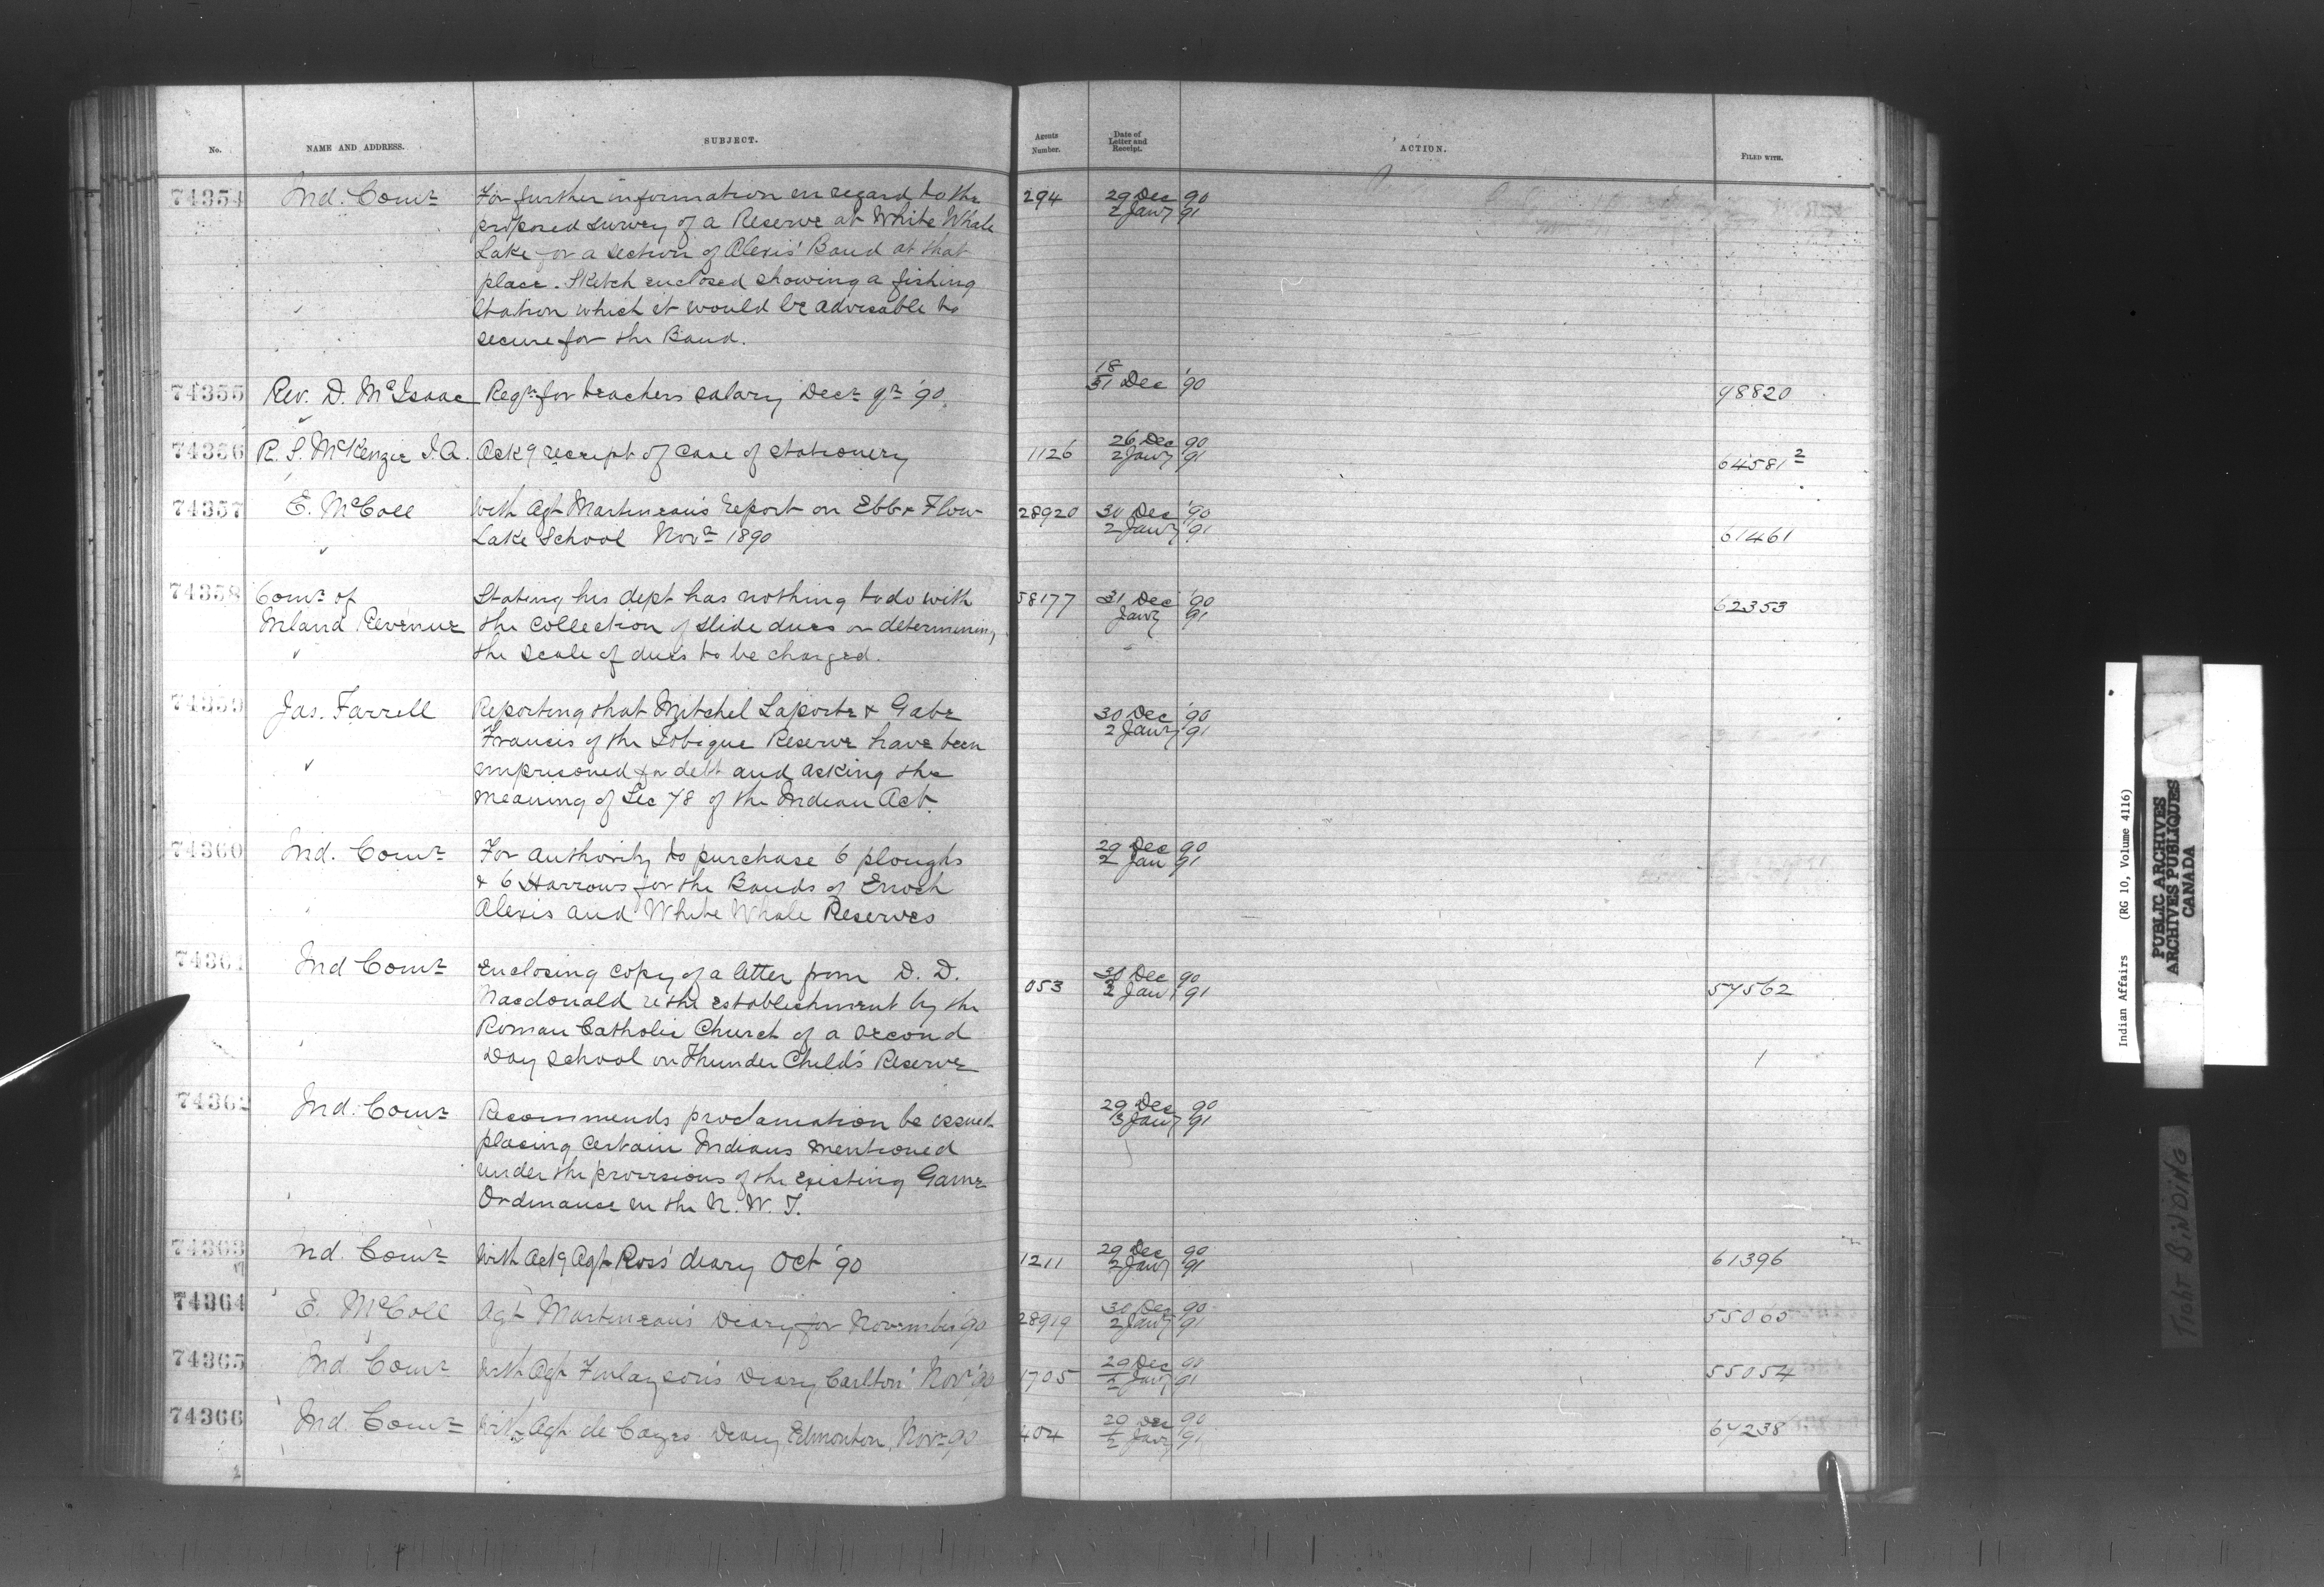 No. NAME AND ADDRESS. SUBJECT. Agents Number. Date of Letter and Receipt. ACTION. FILED WITH.
74354 Ind. Comr For further information in regard to the 294 29 Dec 90
proposed survey of a Reserve at White Whale 2 Jany 91
Lake for a section of Alexis' Band at that
place. Sketch enclosed showing a fishing
Station which it would be advisable to
secure for the Band.
74355 Rev. D. McIsaac Reqn for teachers salary Decr qr '90. 18/31 Dec '90 78820
74356 R. S. McKenzie I.A. Ackg receipt of case of stationery 1126 26 Dec 90 64581 2
2 Jany 91
74357 E. McColl With Agt Martineau's report on Ebb & Flow 28920 30 Dec '90
Lake School Novr 1890 2 Jany 91 61461
74358 Comr of Stating his dept has nothing to do with 58177 31 Dec '90 62353
Inland Revenue the collection of slide dues or determining Jany 91
the scale of dues to be charged.
74359 Jas. Farrell Reporting that Mitchel Laporte & Gabe 30 Dec '90
Francis of the Tobique Reserve have been 2 Jany 91
imprisoned for debt and asking the
meaning of Sec 78 of the Indian Act.
74360 Ind. Comr For authority to purchase 6 ploughs 29 Dec 90
& 6 Harrows for the Bands of Enoch 2 Jan 91
Alexis and White Whale Reserves
74361 Ind Comr Enclosing copy of a letter from D. D. 053 Dec 90 57562
Macdonald re the establishment by the 2 Jan 91
Roman Catholic Church of a second
Day school on Thunder Child's Reserve
74362 Ind. Comr Recommends proclamation be issued 29 Dec 90
placing certain Indians mentioned 3 Jany 91
under the provisions of the existing Game
Ordinance in the N. W. T.
74363 nd. Comr With Actg Agt Ross' diary Oct '90 1211 29 Dec 90 61396
2 Jany 91
74364 E. McColl Agt Martineau's Diary for November '90 28919 30 Dec 90 55065
2 Jany 91
74365 Ind. Comr With Agt Finlayson's Diary Carlton Novr 90 1705 29 Dec 90 55054
2 Jany 91
74366 Ind. Comr With Agt de Cazes Diary Edmonton, Novr 90 404 29 Dec 90 67238
2 Jany 91
Indian Affairs (RG 10, Volume 4116)
PUBLIC ARCHIVES
ARCHIVES PUBLIQUES
CANADA
TIGHT BINDING